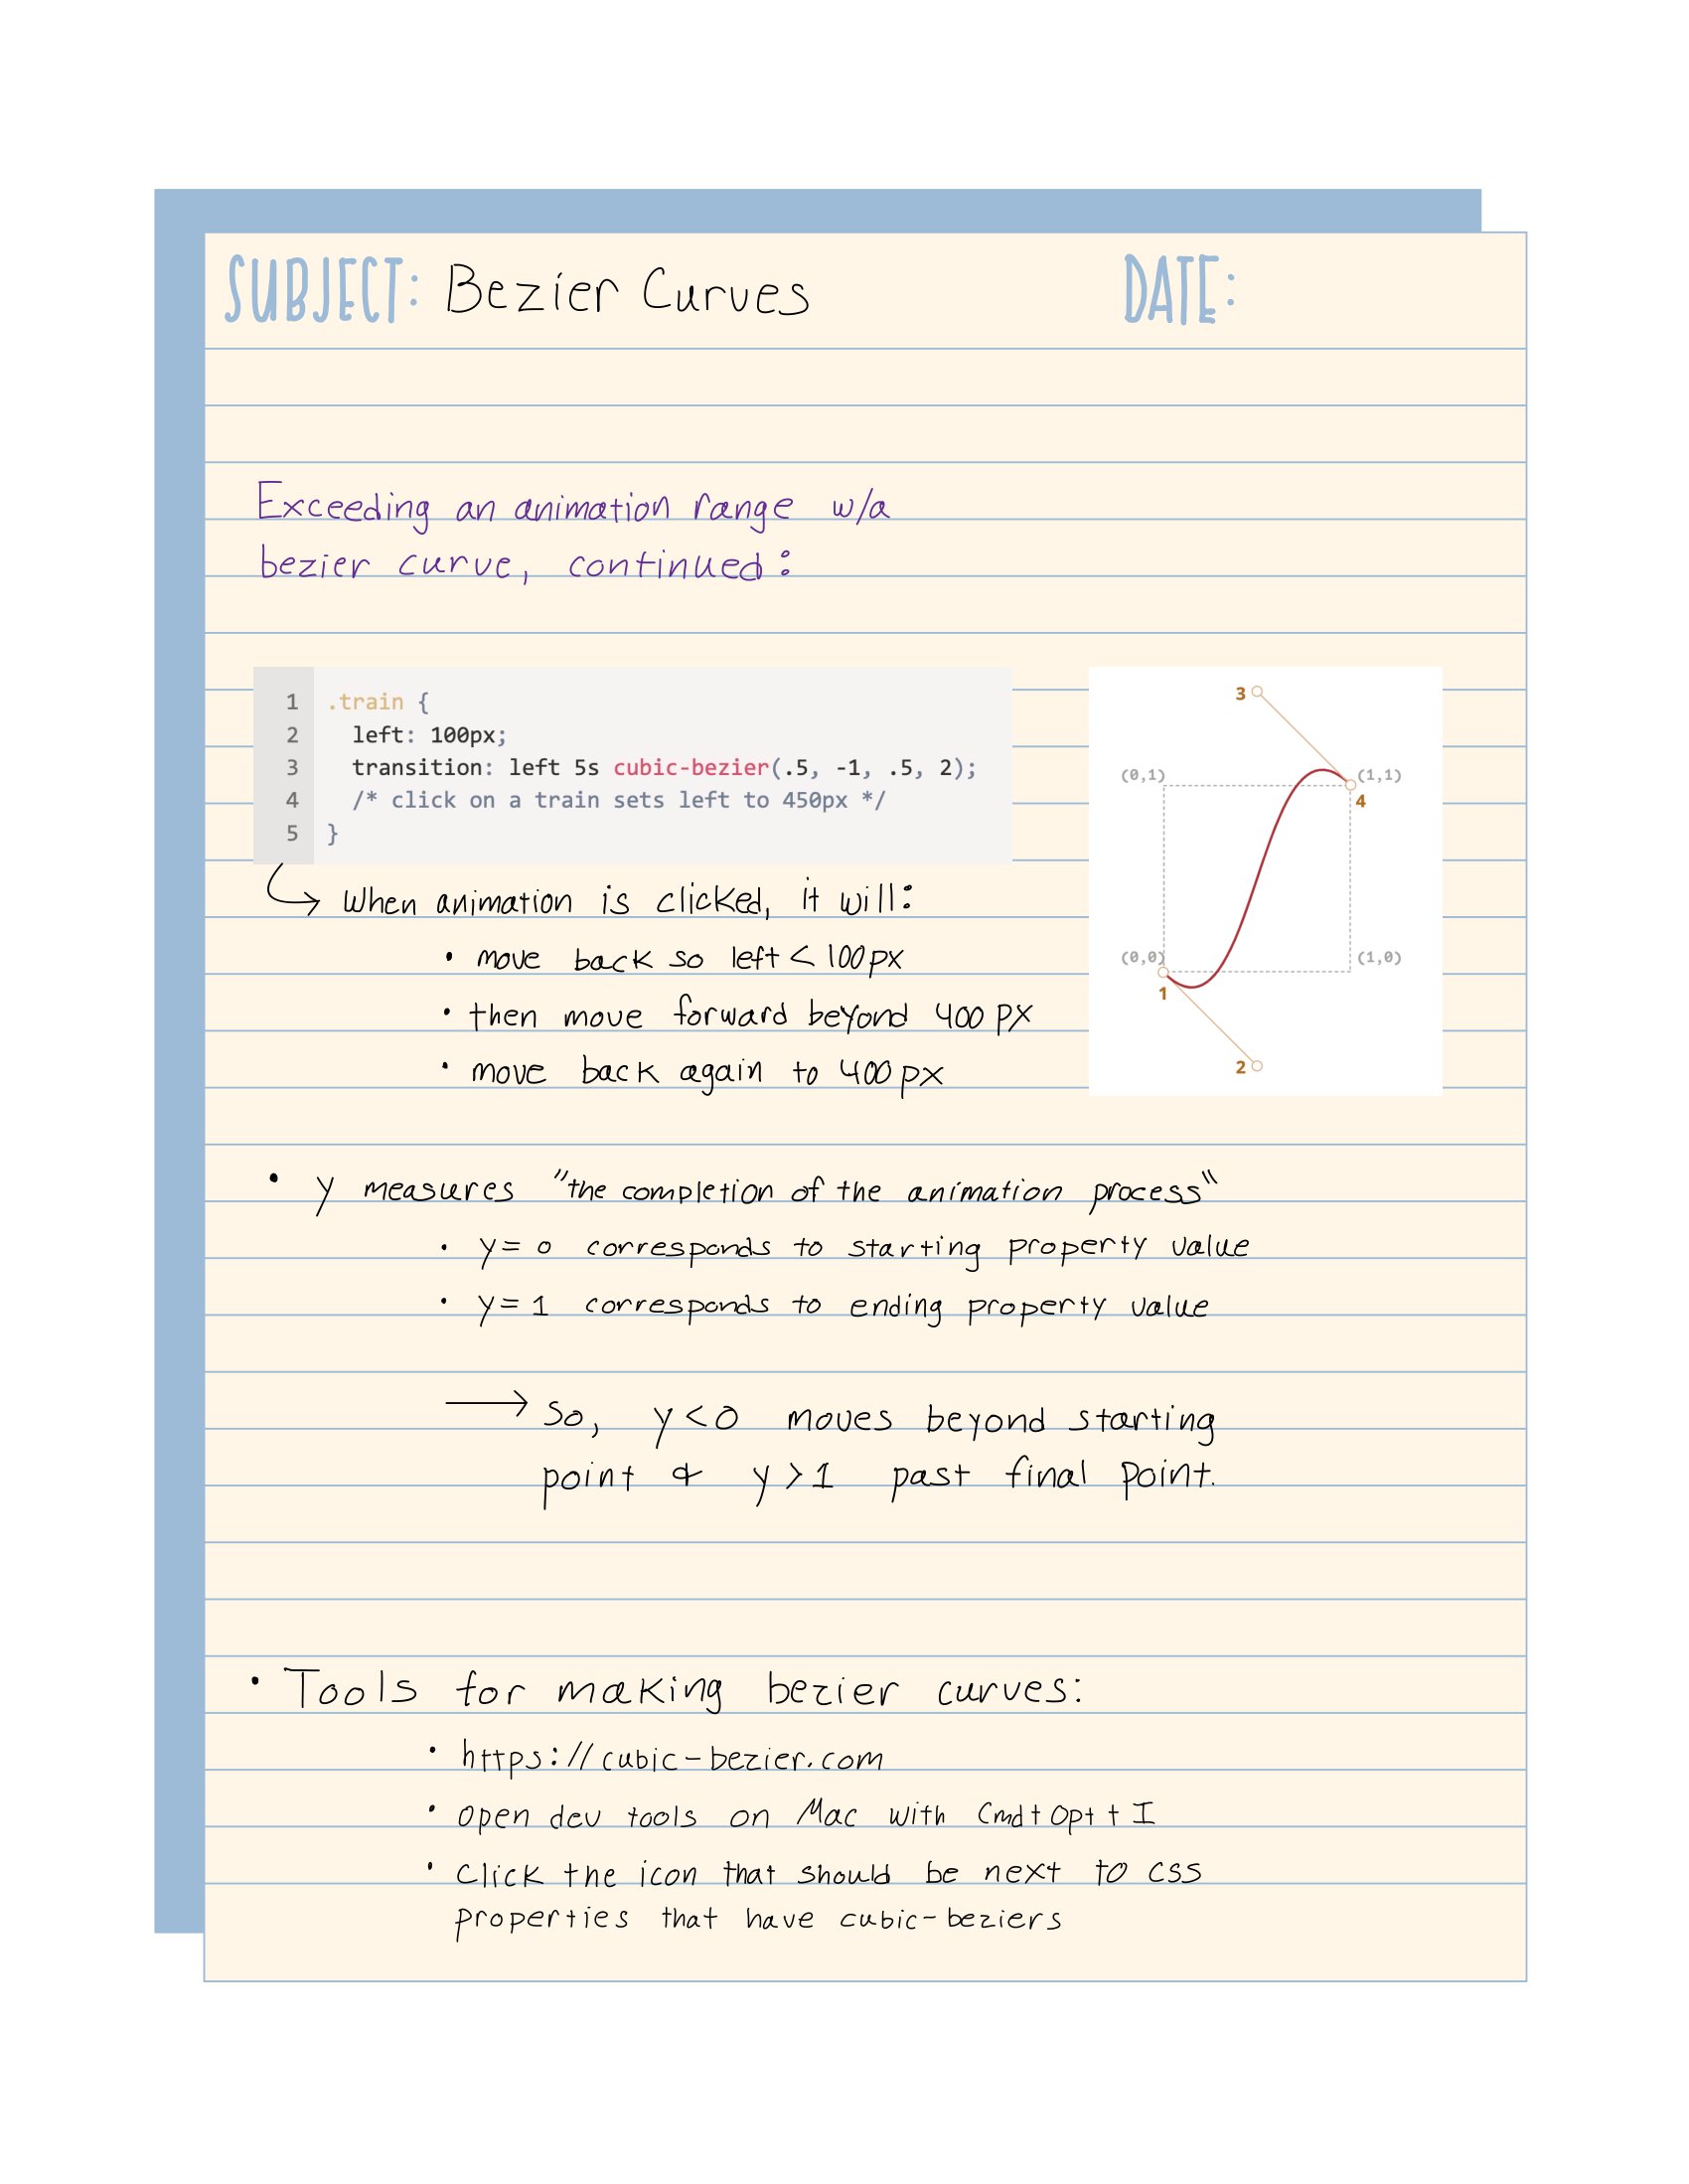 SUBJECT: Bezier Curves
DATE:
Exceeding an animation range w/a
bezier curve, continued:
1 .train {
2 left: 100px;
3 transition: left 5s cubic-bezier(.5, -1, .5, 2);
4 /* click on a train sets left to 450px */
5 }
3
(0,1) (1,1)
4
(0,0) (1,0)
1
2
When animation is clicked, it will:
• move back so left < 100px
• then move forward beyond 400 px
• move back again to 400px
• y measures "the completion of the animation process"
• y = 0 corresponds to starting property value
• y = 1 corresponds to ending property value
→ So, y < 0 moves beyond starting
point & y > 1 past final point.
• Tools for making bezier curves:
• https://cubic-bezier.com
• open dev tools on Mac with Cmd+Opt+I
• Click the icon that should be next to css
properties that have cubic-beziers